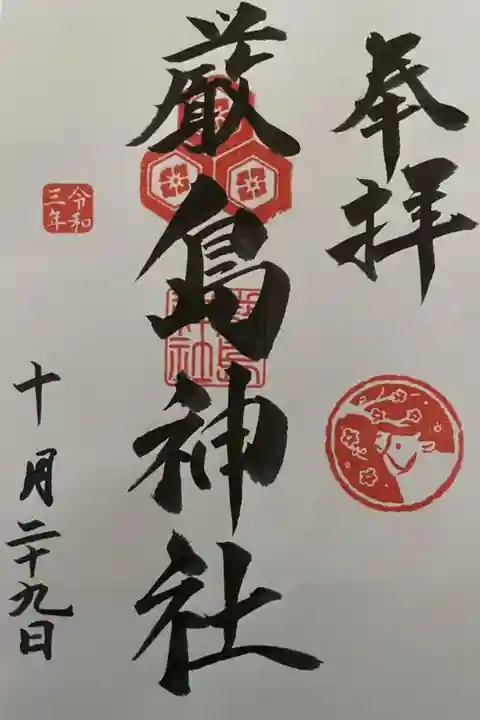 奉拝
厳島神社
厳島
神社
令和
三年
十月二十九日